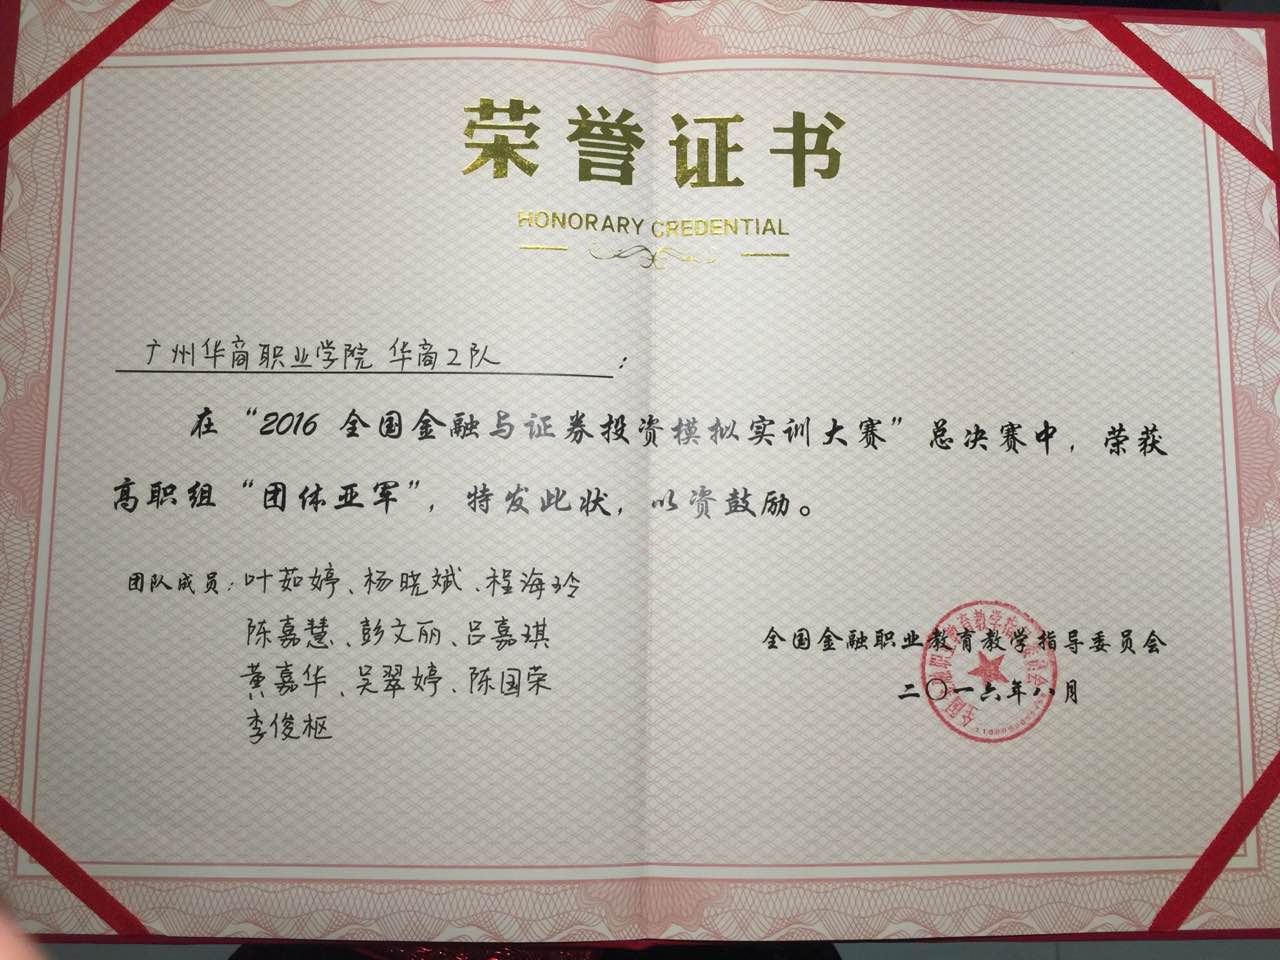 荣誉证书
HONORARY CREDENTIAL
广州华商职业学院 华商2队：
在“2016 全国金融与证券投资模拟实训大赛”总决赛中，荣获
高职组“团体亚军”，特发此状，以资鼓励。
团队成员：叶茹婷、杨晓斌、程海玲
陈嘉慧、彭文丽、吕嘉琪
黄嘉华、吴翠婷、陈国荣
李俊枢
全国金融职业教育教学指导委员会
二〇一六年八月